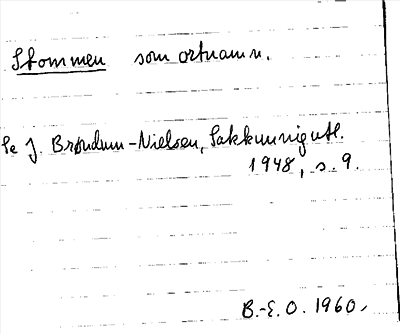 Stommen som ortnamn.
Se J. Brøndum-Nielsen, Sakkunnigutl.
1948, s. 9.
B.-E. O. 1960.